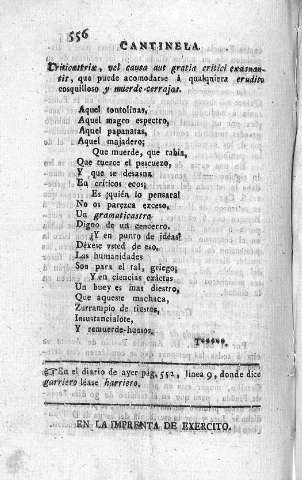 556
CANTINELA
Criticastrix, vel causa aut gratia critici exasnan-
tis, que puede acomodarse á qualquiera erudito
cosquilloso y muerde-cerrajas.
Aquel tontolinas,
Aquel magro espectro,
Aquel papanatas,
Aquel majadero;
Que muerde, que rabia,
Que tuerce el pescuezo,
Y que se desasna
En críticos ecos;
Es ¡quién lo pensara!
No os parezca exceso,
Un gramaticastro
Digno de un cencerro.
¿Y en punto de idéas?
Déxese usted de eso,
Las humanidades
Son para el tal, griego;
Y en ciencias exâctas
Un buey es mas diestro,
Que aqueste machaca,
Zurrampio de tiestos,
Insustancialote,
Y remuerde-huesos.
En el diario de ayer pag. 552, linea 9, donde dice
garriero léase harriero.
EN LA IMPRENTA DE EXERCITO.